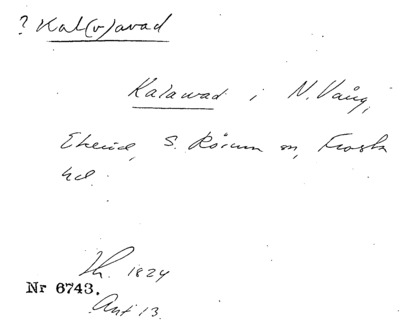 ? Kal(v)avad
Kalawad i N. Vång,
Ekeröd, S. Rörum sn, Frosta
hd.
Th. 1824
Nr 6743.
Ant 13.